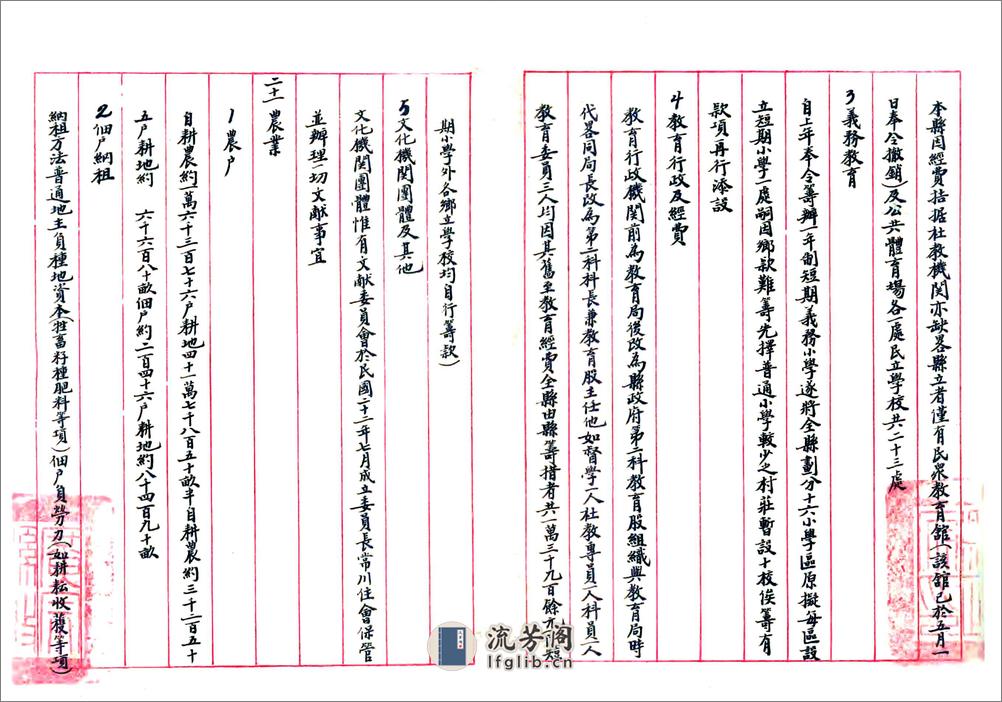 本縣因經費拮据社教機関亦缺畧縣立者僅有民衆教育舘(該舘已於五月一
日奉令撤銷)及公共體育場各一處民立學校共二十三處
3義務教育
自上年奉令籌辦一年制短期義務小學遂將全縣劃分十六小學區原擬每區設
立短期小學一處嗣因鄉款難籌先擇普通小學較少之村莊暫設十校俟籌有
款項再行添設
4教育行政及經費
教育行政機関前為教育局後改為縣政府第二科教育股組織與教育局時
代畧同局長改為第二科科長兼教育股主任他如督學一人社教專員一人科員一人
教育委員三人均因其舊至教育經費全縣由縣籌措者共一萬三千九百餘元短
期小學外各鄉立學校均自行籌款)
5文化機関團體及其他
文化機関團體惟有文献委員會於民國二十二年七月成立委員長常川住會保管
並辦理一切文献事宜
二十一農業
1農户
自耕農約一萬六千三百七十六户耕地四十一萬七千八百五十畝半自耕農約三千二百五十
五户耕地約 六千六百八十畝佃户約二百四十六户耕地約八千四百九十畝
2佃户納租
納租方法普通地主負種地資本(牲畜籽種肥料等項)佃户負勞力(如耕耘收穫等項)
流芳阁
lfglib.cn